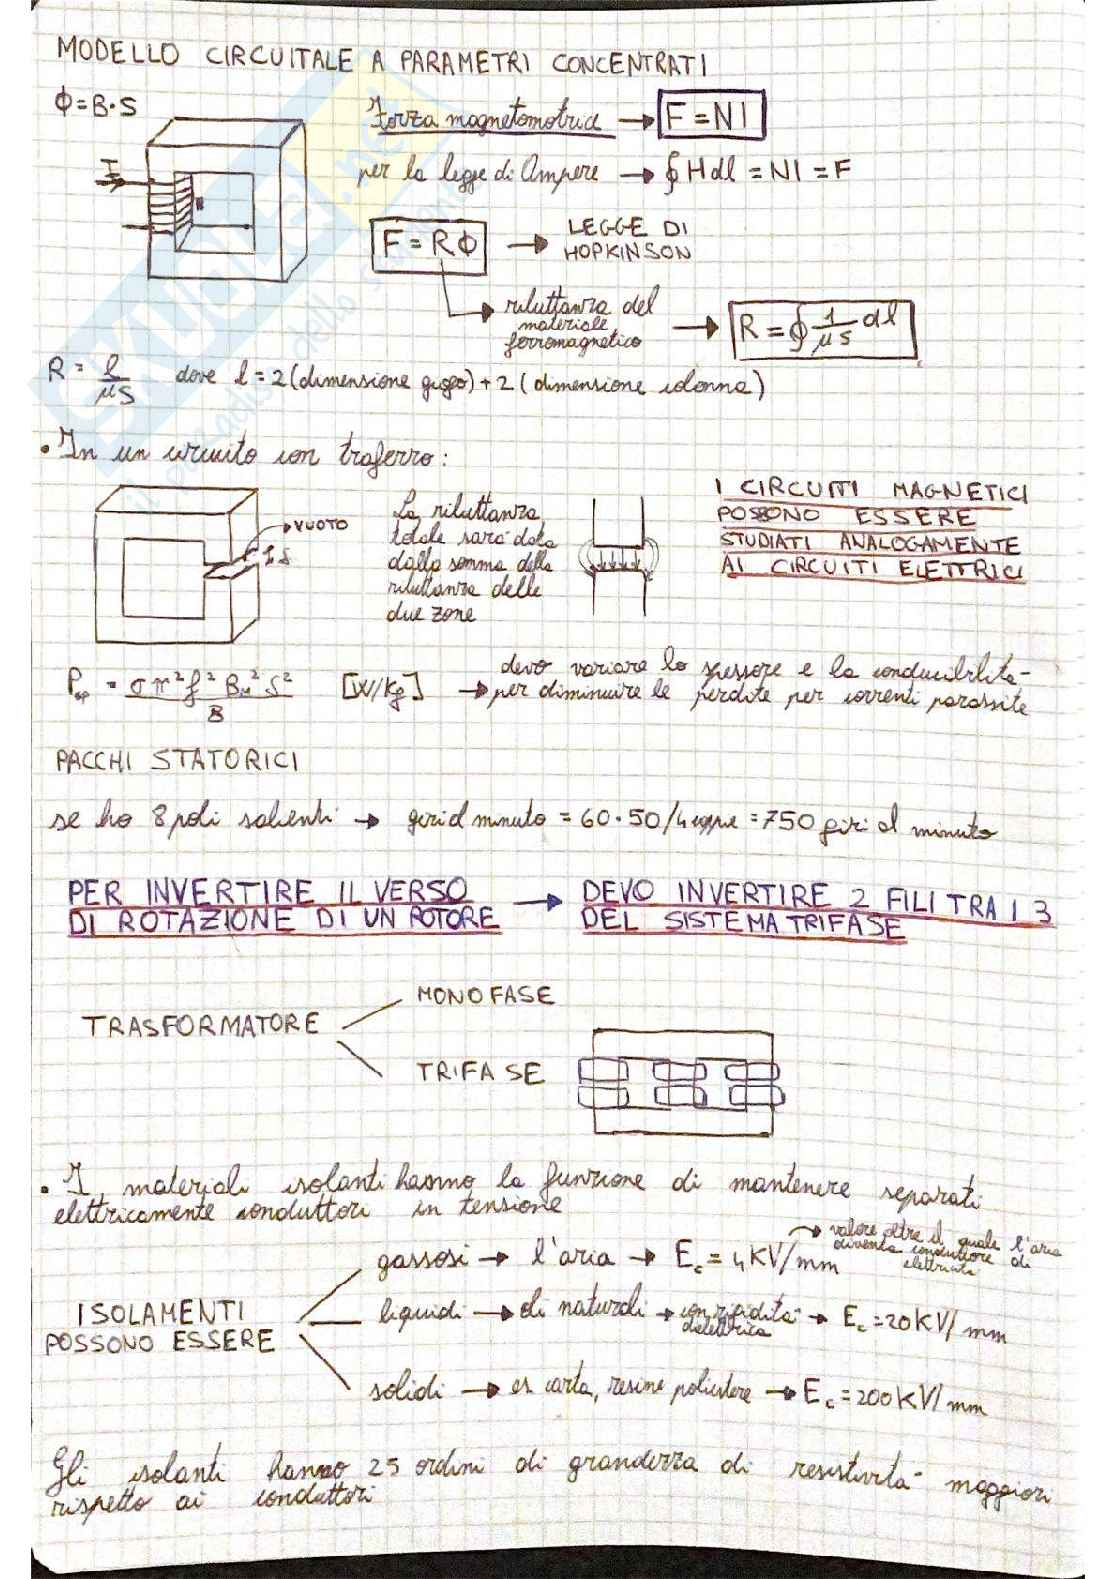 MODELLO CIRCUITALE A PARAMETRI CONCENTRATI
ϕ = B·S
Forza magnetomotrice → F = NI
I
per la legge di Ampere → ∮ H dl = NI = F
F = Rϕ → LEGGE DI
HOPKINSON
riluttanza del
materiale
ferromagnetico → R = ∮ 1/μS dl
R = l/μS dove l = 2 (dimensione giogo) + 2 (dimensione colonna)
• In un circuito con traferro:
VUOTO
La riluttanza
totale sarà data
dalla somma della
riluttanza delle
due zone
I CIRCUITI MAGNETICI
POSSONO ESSERE
STUDIATI ANALOGAMENTE
AI CIRCUITI ELETTRICI
P_cp = σ π² f² B_M² S² / B [W/Kg] → devo variare lo spessore e la conducibilità
per diminuire le perdite per correnti parassite
PACCHI STATORICI
se ho 8 poli salienti → giri al minuto = 60·50/4 coppie = 750 giri al minuto
PER INVERTIRE IL VERSO
DI ROTAZIONE DI UN ROTORE → DEVO INVERTIRE 2 FILI TRA I 3
DEL SISTEMA TRIFASE
TRASFORMATORE
MONOFASE
TRIFASE
• I materiali isolanti hanno la funzione di mantenere separati
elettricamente conduttori in tensione
ISOLAMENTI
POSSONO ESSERE
gassosi → l'aria → E_c = 4KV/mm → valore oltre il quale l'aria
diventa conduttore di
elettricità
liquidi → oli naturali → con rigidità
dielettrica → E_c = 20KV/mm
solidi → es. carta, resine poliestere → E_c = 200KV/mm
Gli isolanti hanno 25 ordini di grandezza di resistività maggiori
rispetto ai conduttori
SKUOLA.net
il paradiso dello studente